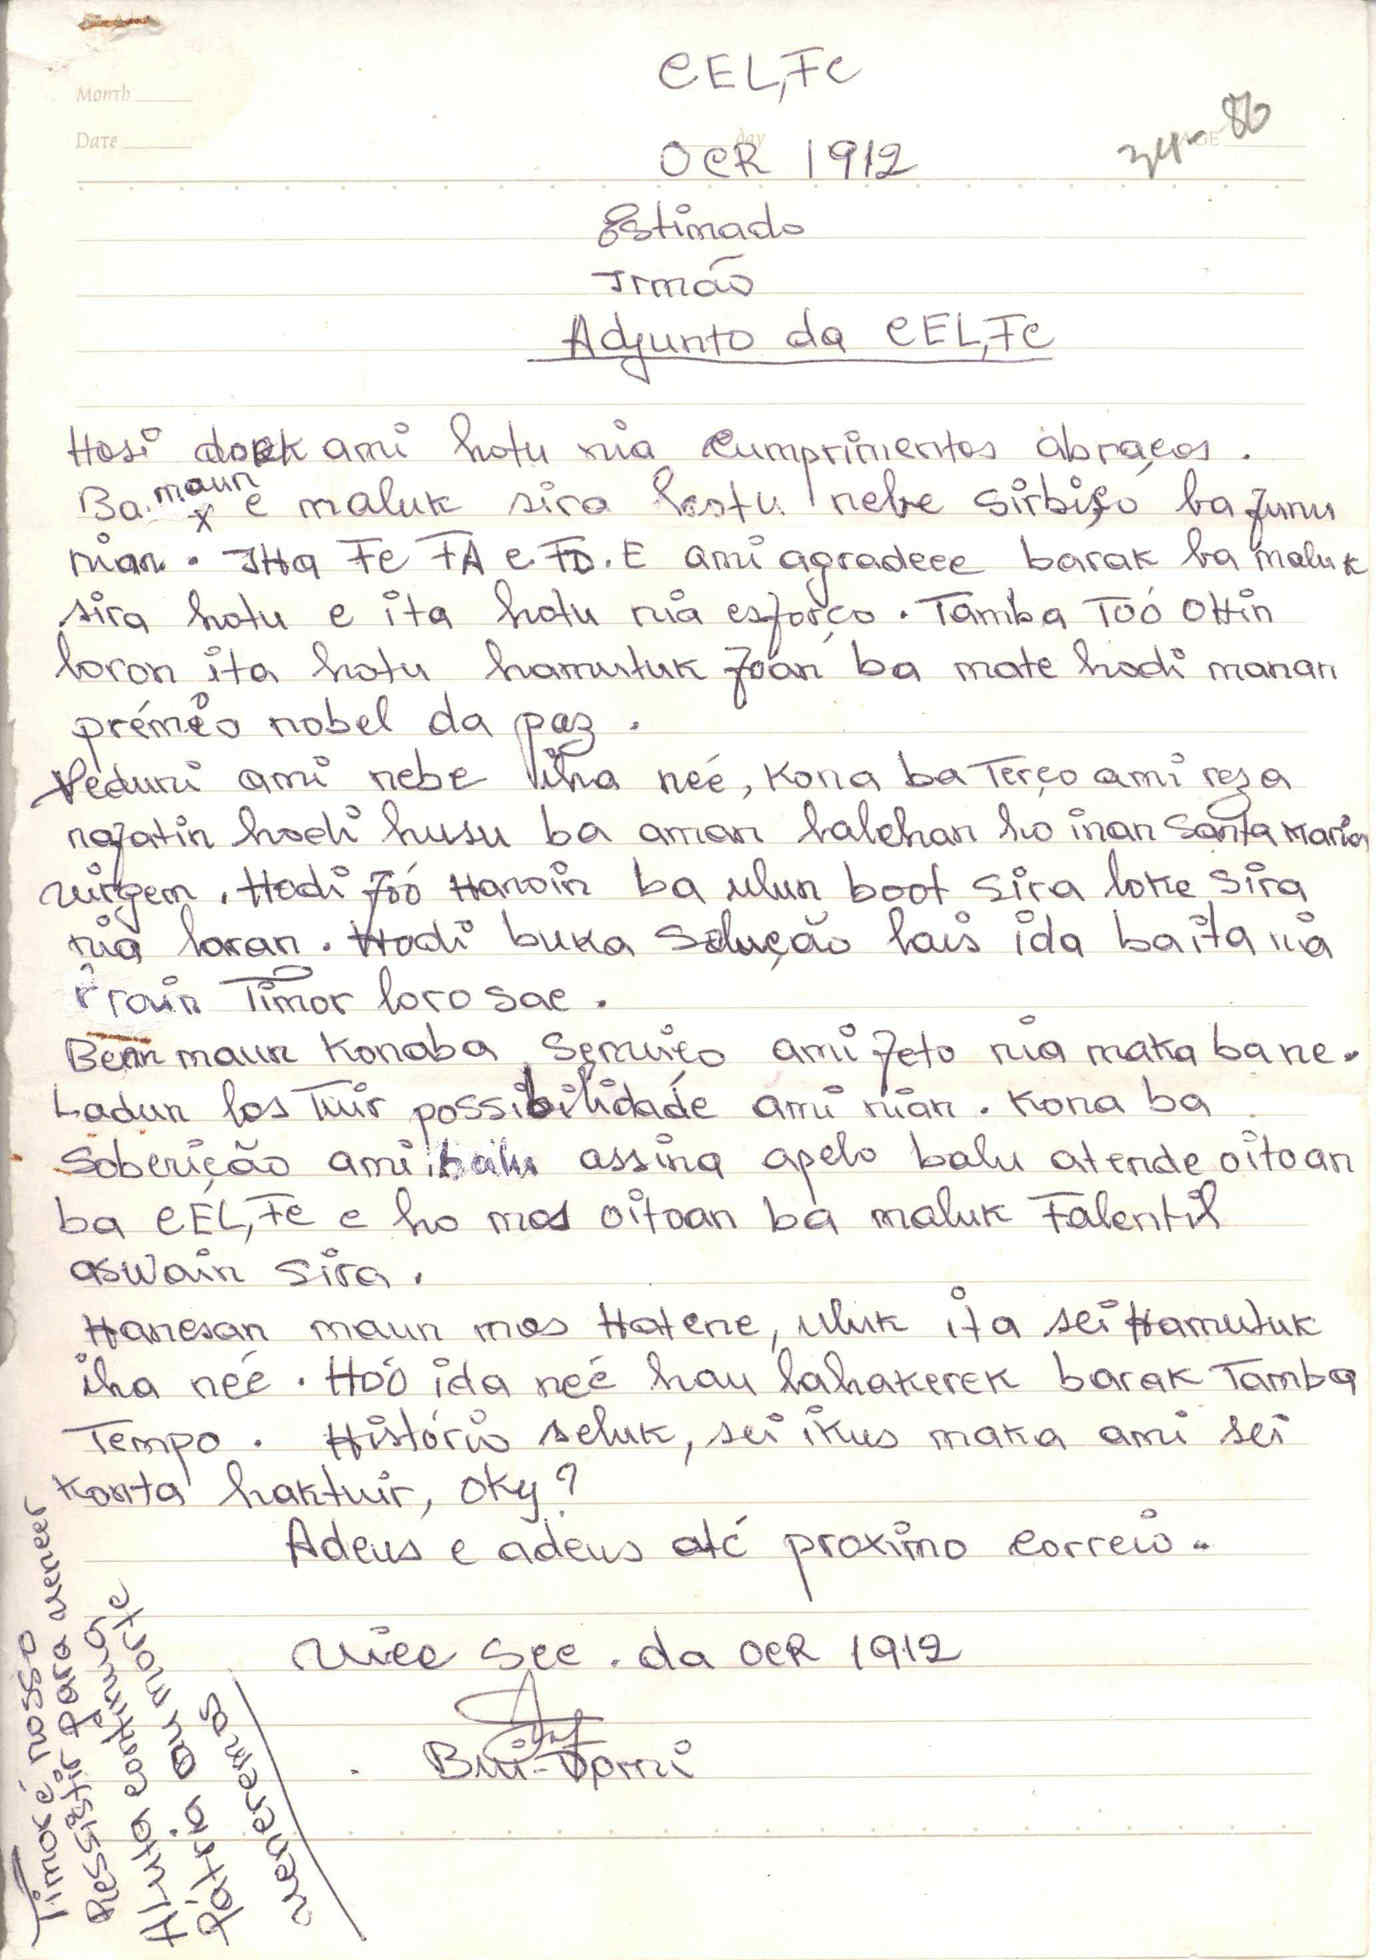 CEL,FC
Month
Date
day
OCR 1912
34-86
Estimado
Irmão
Adjunto da CEL,FC
Hosi dook ami hotu nia cumprimentos abraços.
Ba maun e maluk sira hotu nebe sirbiço ba funu
nian. IHa FC FA e FD. E ami agradece barak ba maluk
sira hotu e ita hotu nia esforço. Tamba Too OHin
loron ita hotu hamutuk foan ba mate hodi manan
prémio nobel da paz.
Veduni ami nebe iha neé, Kona ba Terço ami reza
nafatin hodi husu ba aman lalehan ho inan Santa Maria
virgem. Hodi foó Hanoin ba ulun boot sira loke sira
nia laran. Hodi buka solução lais ida ba ita nia
rain Timor loro sae.
Benn maun Konaba Serviço ami feto nia maka ba ne.
Ladun los Tuir possibilidade ami nian. Kona ba
Soberição ami balu assina apelo balu atende oitoan
ba CEL,FC e ho mos oitoan ba maluk Falentil
aswain sira.
Hanesan maun mos Hatene, uluk ita sei Hamutuk
iha neé. Hoó ida neé hau lahakerek barak Tamba
Tempo. História seluk, sei ikus maka ami sei
Konta haktuir, Oky?
Adeus e adeus até proximo correio..
Vice Sec. da OCR 1912
Timor é nosso
Ressistir Para vencer
A Luta continua
Pátria ou morte
venceremos